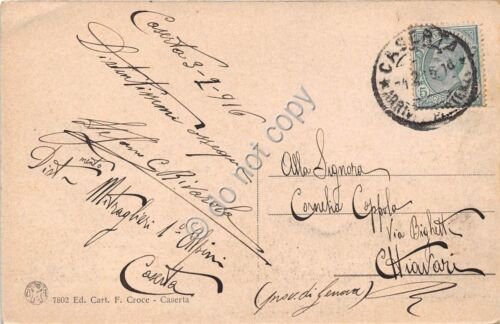 Caserta 3-2-916
Distintissimi ossequi
Stefano C. Rivarola
Distⁿᵉⁿᵗᵒ Mitraglieri 1° Alpini
Caserta
CASERTA
ARRIVI
5
Alla Signora
Cornelia Coppola
Via Bighetti
Chiavari
(prov. di Genova)
do not copy
7802 Ed. Cart. F. Croce - Caserta